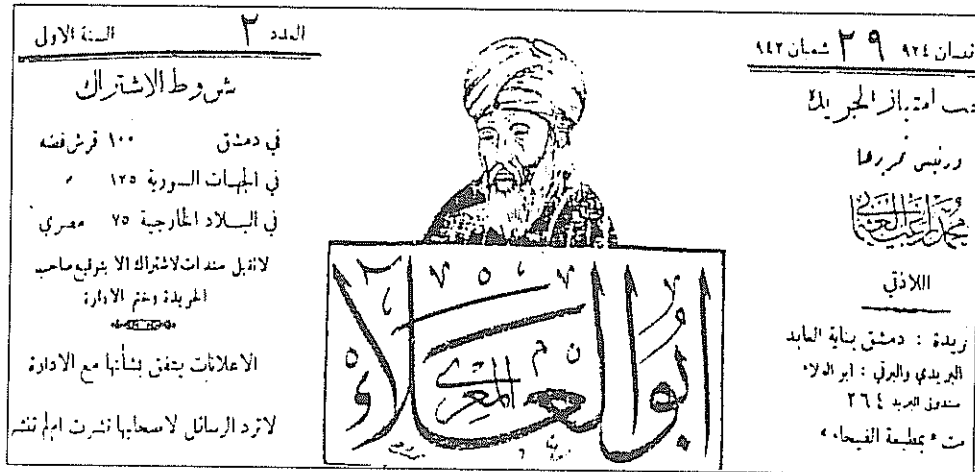 نيسان ٩٢٤ ٢٩ شعبان ٩٤٢
امتياز الجريدة
ورئيس تحريرها
محمد راغب العثماني
اللاذقي
دمشق بناية العابد
البريدي والبرقي : ابو العلاء
صندوق البريد ٢٦٤
بمطبعة الفيحاء »
ابو العلاء
المعري
العدد ٢ السنة الاولى
شروط الاشتراك
في دمشق ١٠٠ قرش فضه
في الجهات السورية ١٢٥ »
في البلاد الخارجية ٧٥ مصري
لاتقبل سندات لاشتراك الا بتوقيع صاحب
الجريدة وختم الادارة
الاعلانات يتفق بشأنها مع الادارة
لاترد الرسائل لاصحابها نشرت ام لم تنشر